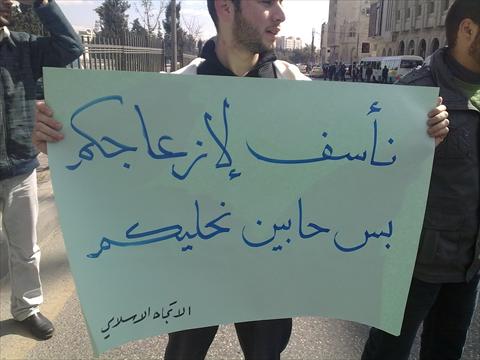 نأسف لإزعاجكم
بس حابين نحليكم
الاتجاه الاسلامي